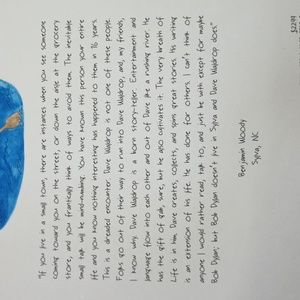 "If you live in a small town, there are instances when you see someone
coming toward you on the street, or down the aisle at the grocery
store, and you frantically think of ways to avoid them. The inevitable
small talk will be mind-numbing. You have known this person your entire
life and you know nothing interesting has happened to them in 16 years.
This is a dreaded encounter. Dave Waldrop is not one of these people.
Folks go out of their way to run into Dave Waldrop, and, my friends,
I know why. Dave Waldrop is a born story-teller. Entertainment and
language flow into each other and out of Dave like a rushing river. He
has the gift of gab, sure, but he also cultivates it. The very breath of
Life is in him. Dave creates, collects, and spins great stories. His writing
is an extension of his life. He has done for others. I can't think of
anyone I would rather read, talk to, and just be with except for maybe
Bob Dylan; but Bob Dylan doesn't live in Sylva and Dave Waldrop does."
Benjamin Woody
Sylva, NC
$22.99